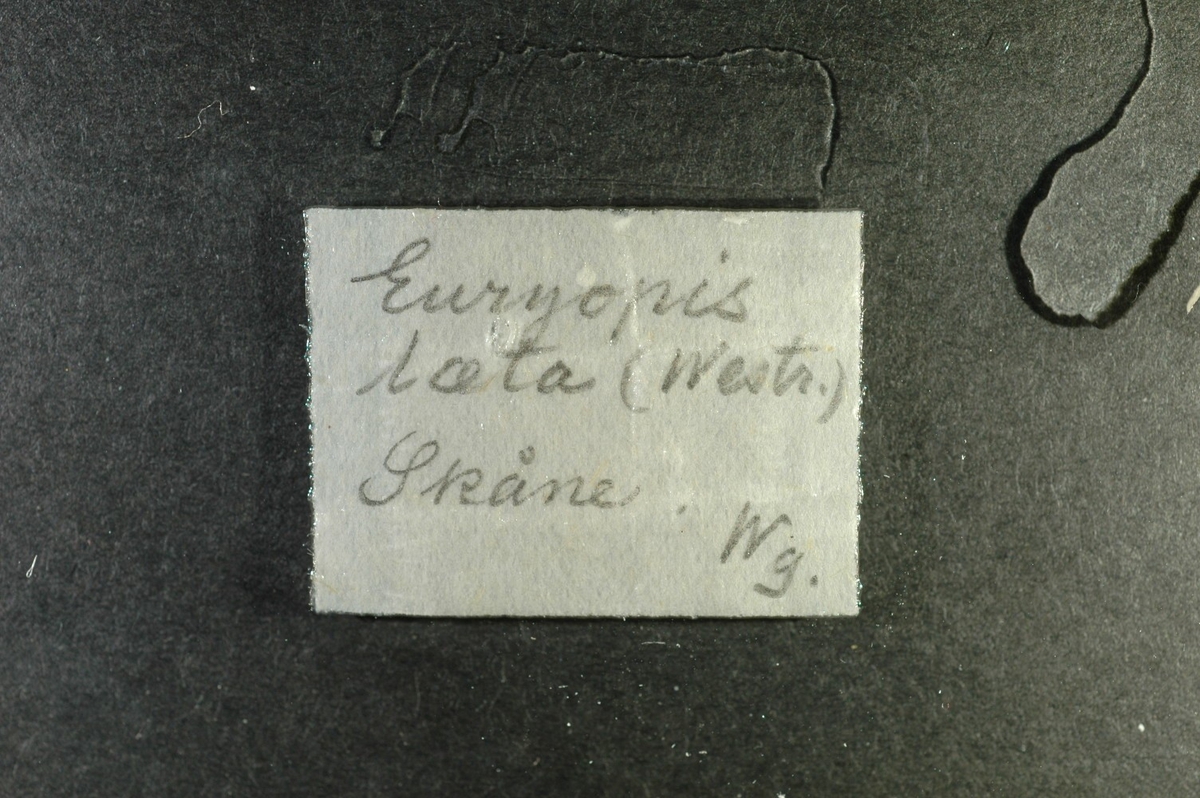 Euryopis
læta (Westr.)
Skåne.
Wg.